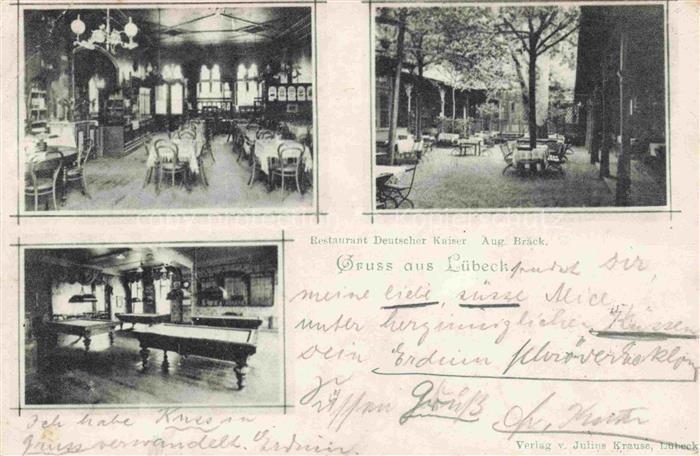 Restaurant Deutscher Kaiser Aug. Bräck.
Gruss aus Lübeck sendet Dir,
meine liebe, süsse Mice
unter herzinniglichen Küssen
Dein Erduin
süssen Gruß
Ich habe Kuss in
Gruss verwandelt. Erduin.
Verlag v. Julius Krause, Lübeck